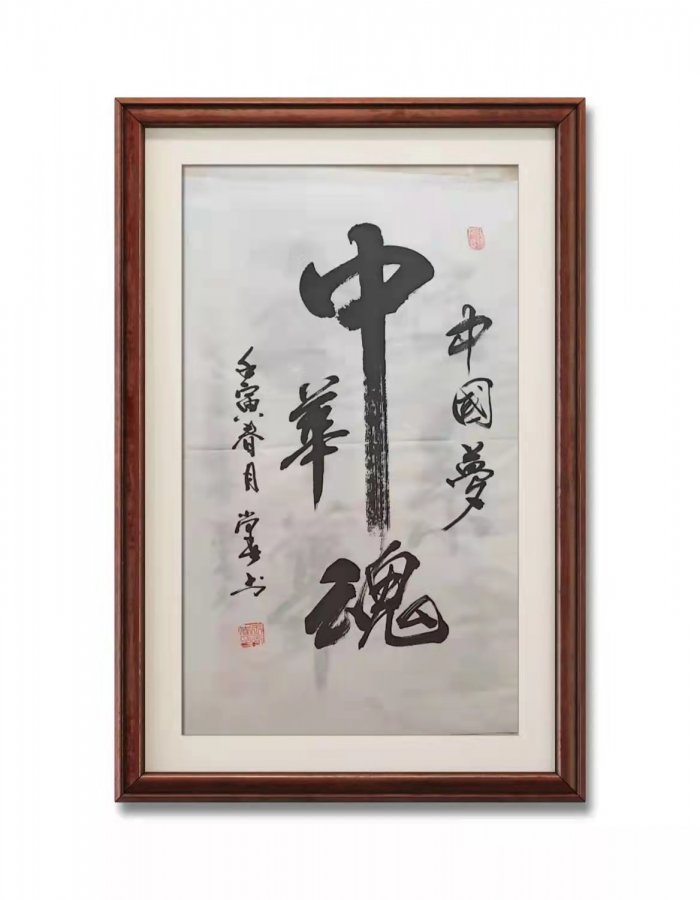 中國夢
中華魂
壬寅春月 堂书